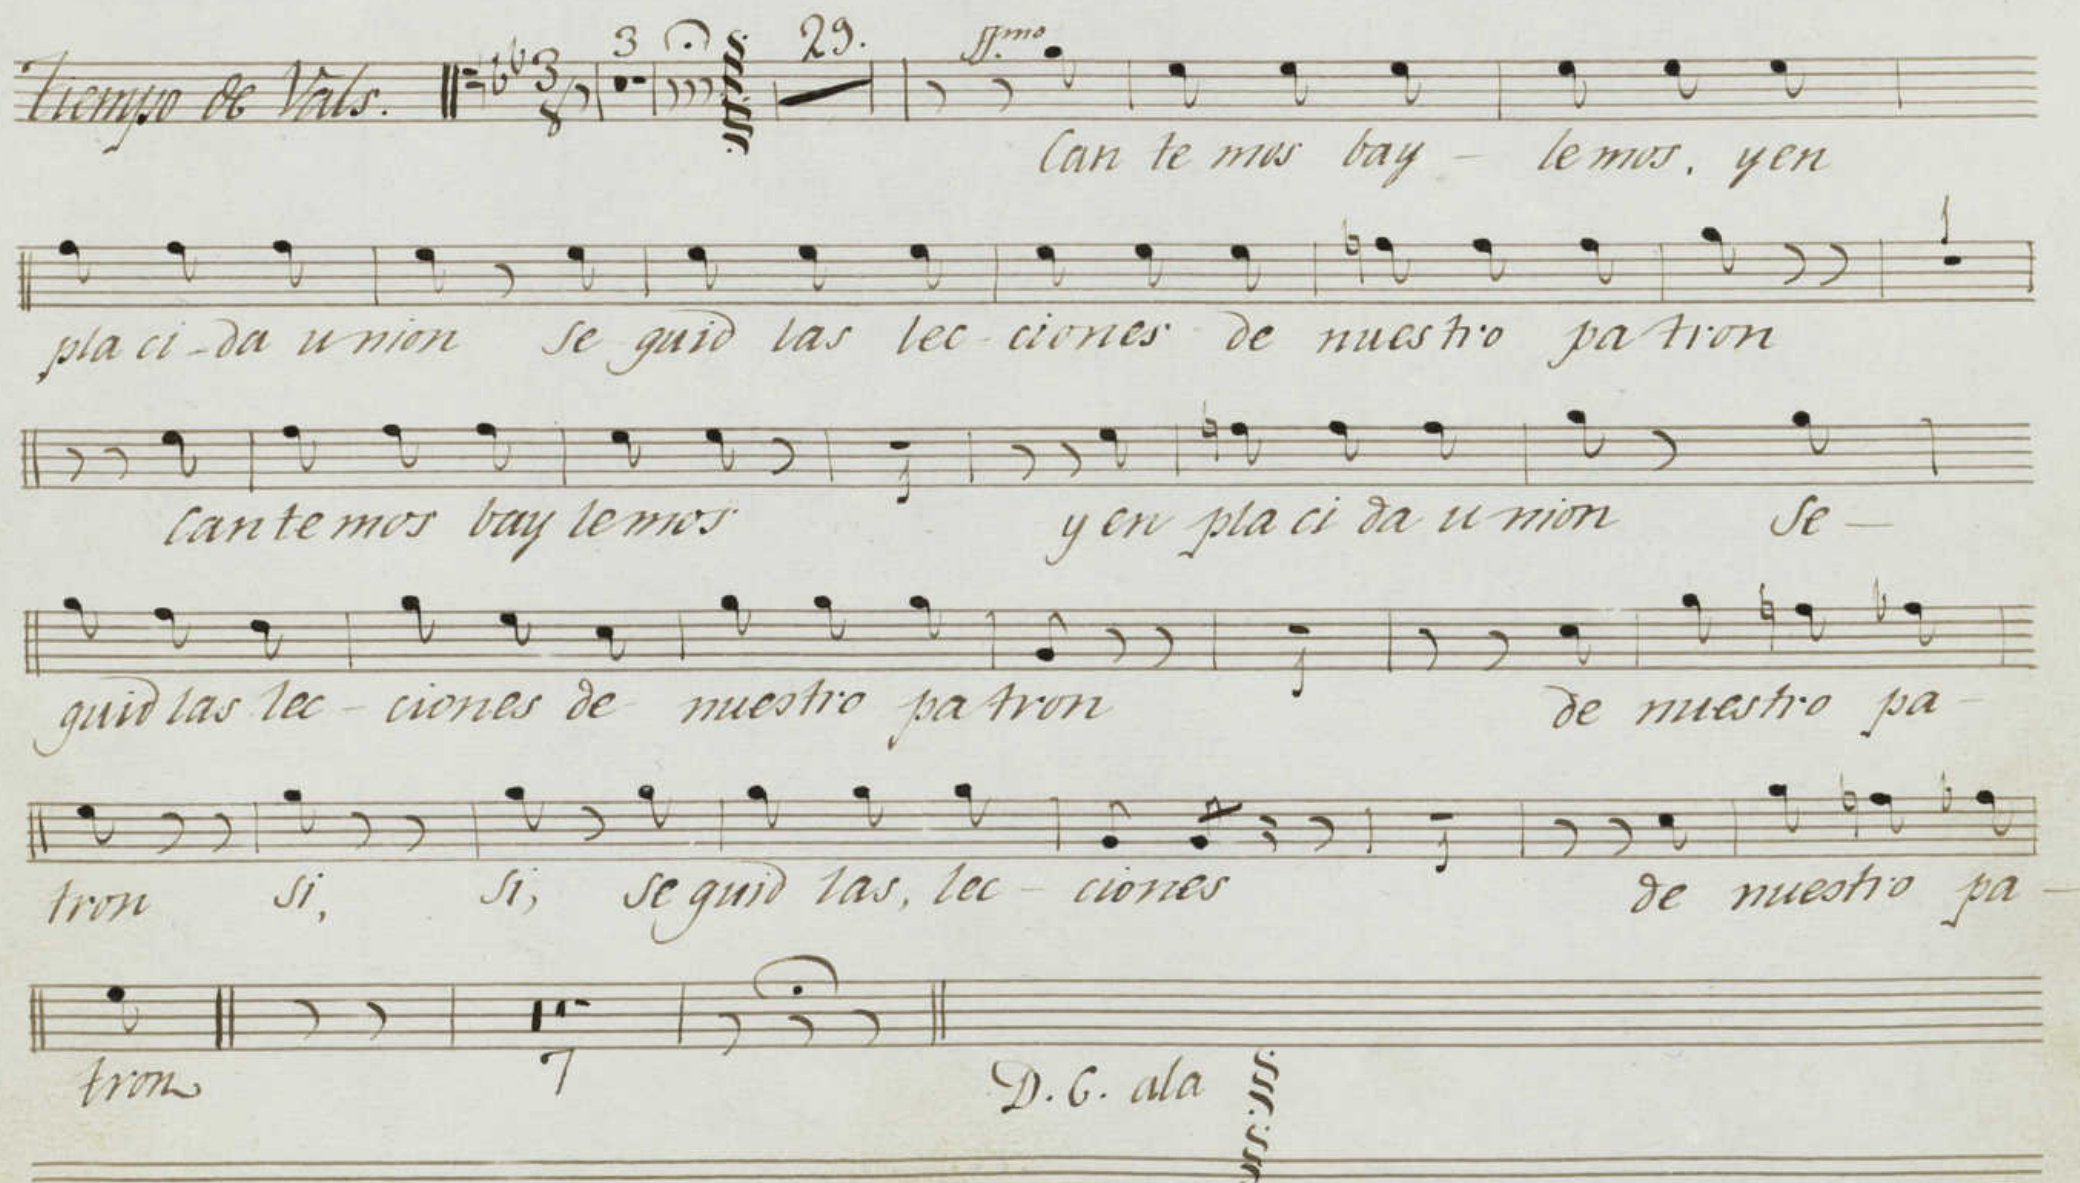 3 29. ffmo
Tiempo de Vals. 3/8
Can te mos bay - le mos, y en
pla ci - da u nion se guid las lec - ciones de nuestro pa tron
1
Can te mos bay le mos y en pla ci da u nion Se -
1
guid las lec - ciones de nuestro pa tron de nuestro pa -
1
tron si, si, se guid las, lec - ciones de nuestro pa -
1
tron
7
D. C. ala